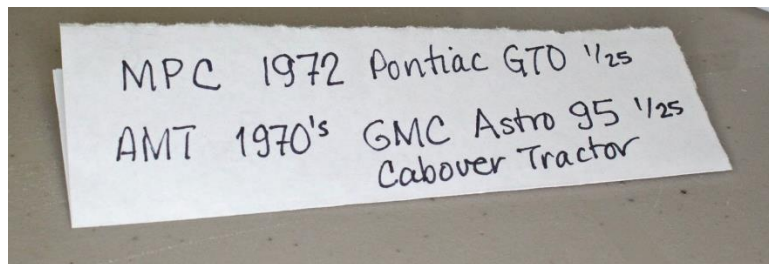 MPC 1972 Pontiac GTO 1/25
AMT 1970's GMC Astro 95 1/25
Cabover Tractor